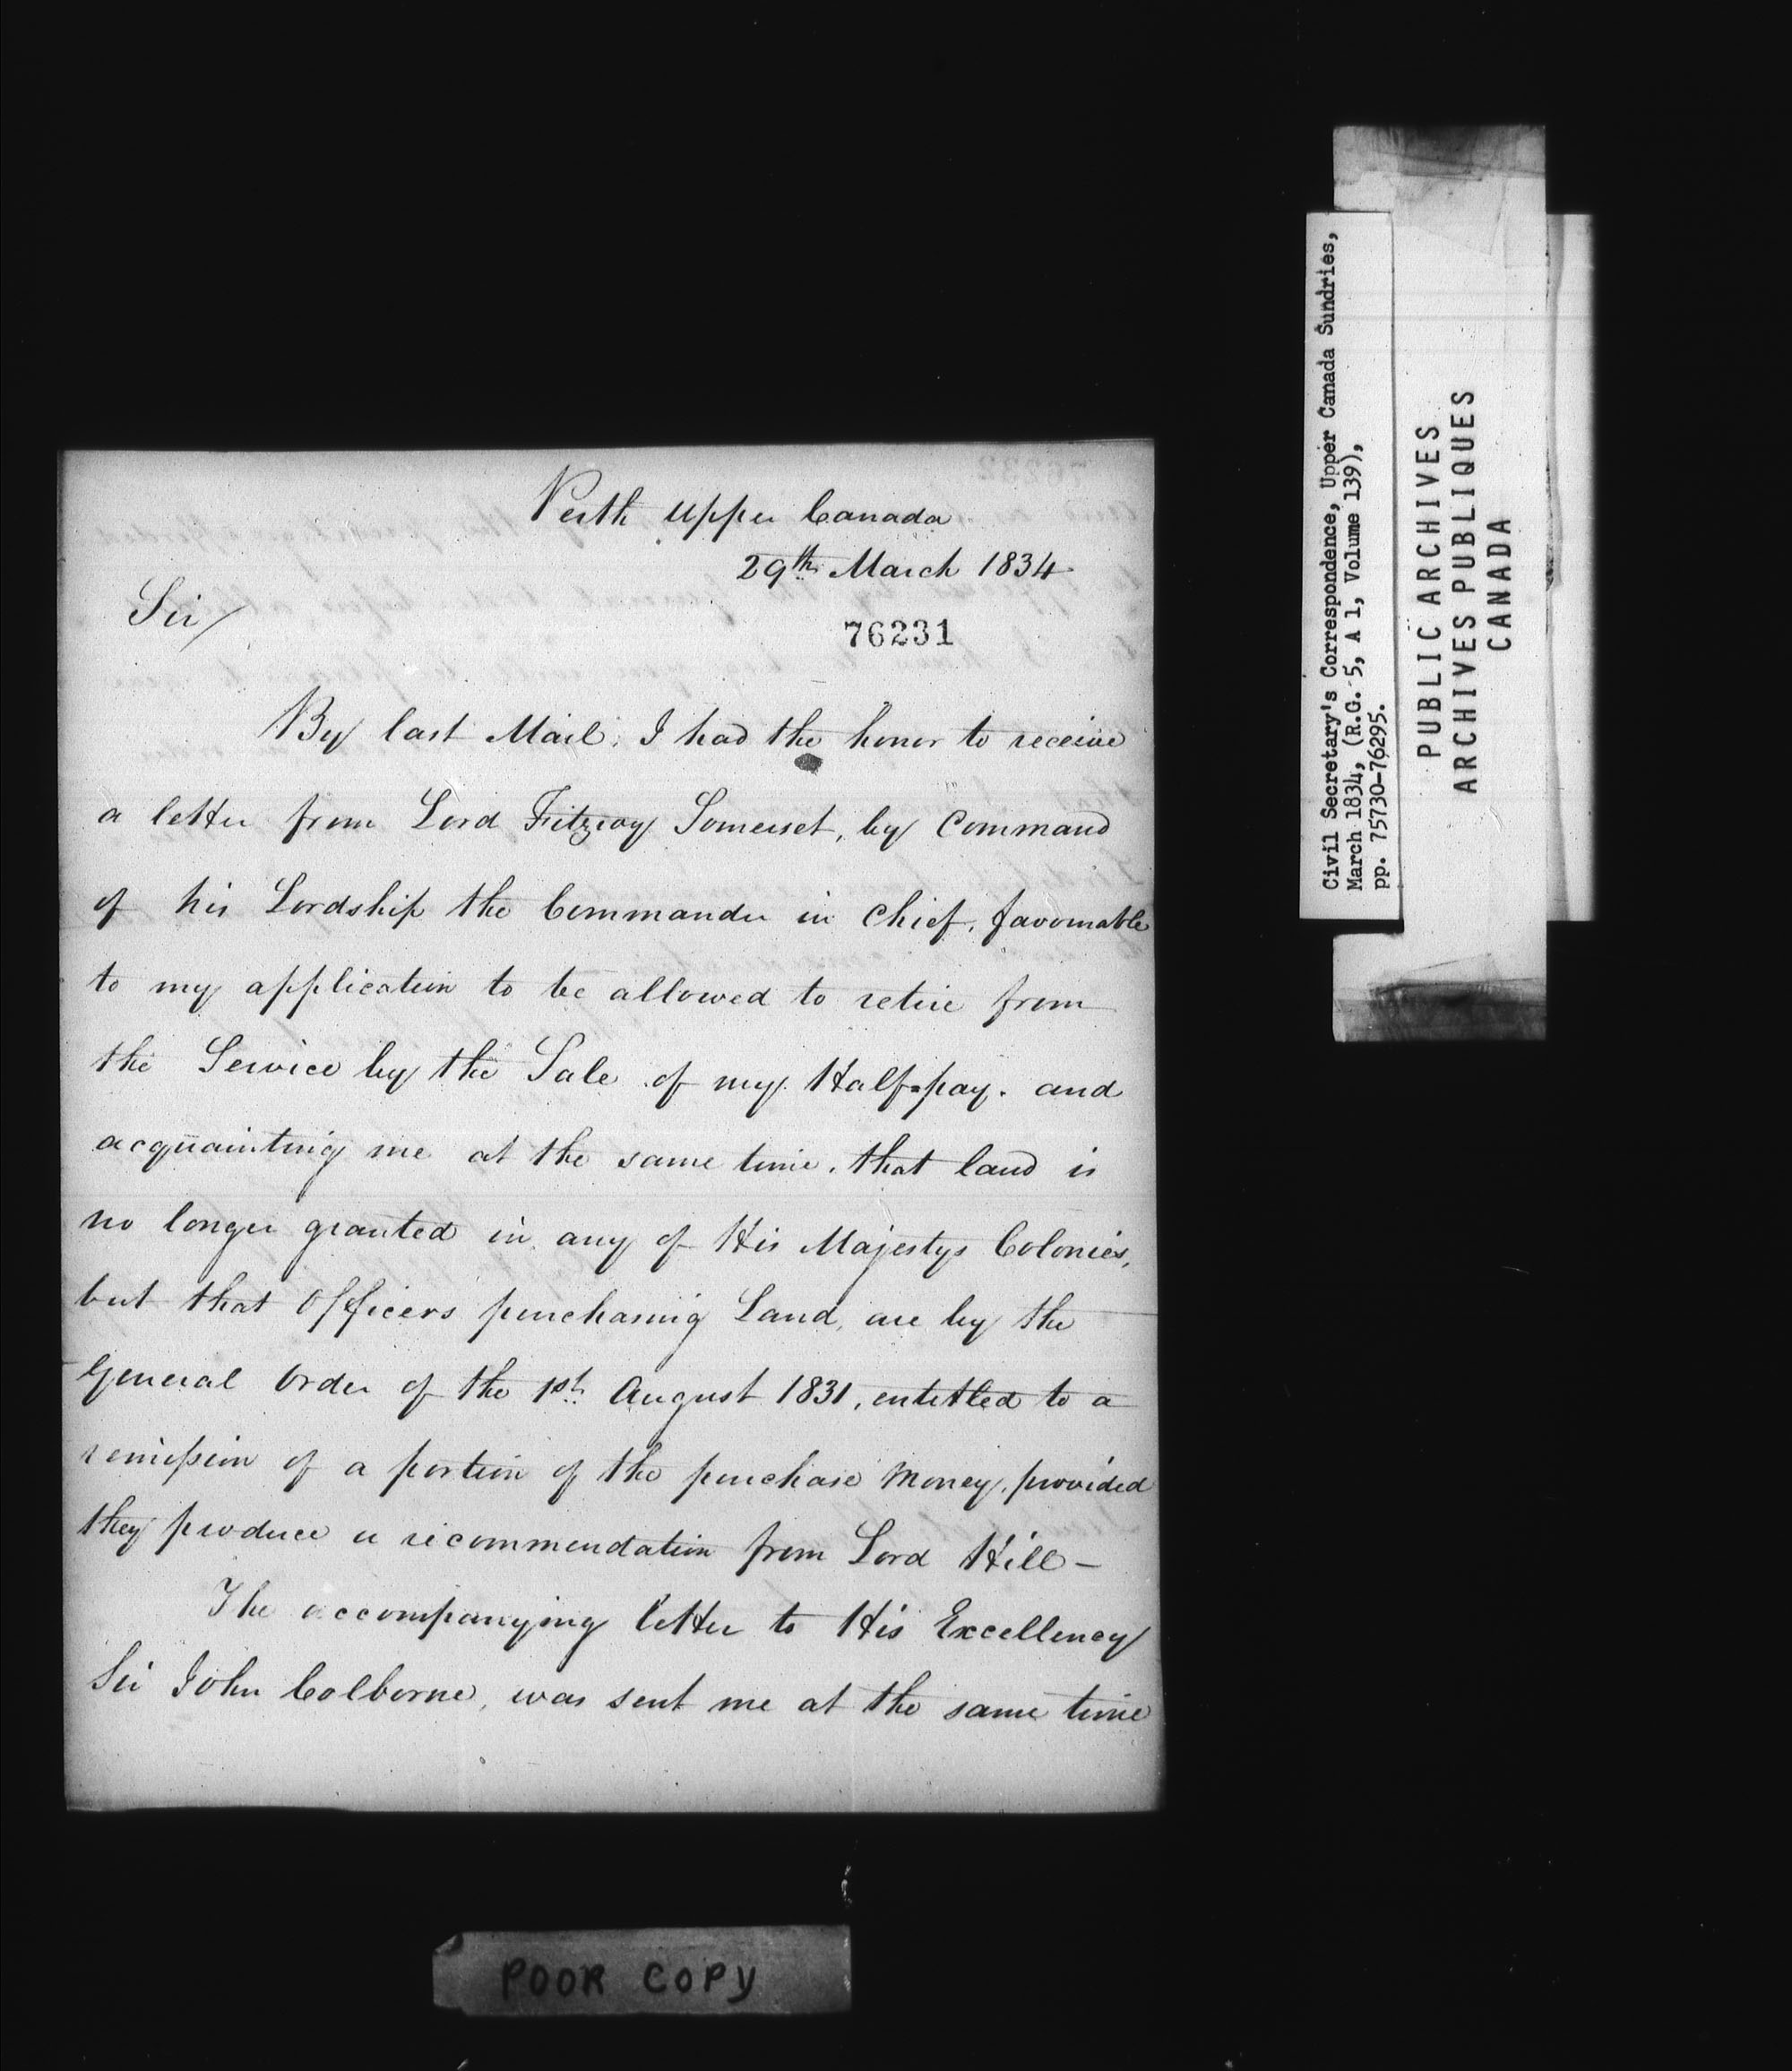 Perth Upper Canada
29th March 1834
Sir/
76231
By last Mail, I had the honor to receive
a letter from Lord Fitzroy Somerset, by Command
of his Lordship the Commander in Chief, favourable
to my application to be allowed to retire from
the Service by the Sale of my Half=pay. and
acquainting me at the same time, that land is
no longer granted in any of His Majestys Colonies,
but that Officers purchasing Land, are by the
General Order of the 1st August 1831, entitled to a
remission of a portion of the purchase Money, provided
they produce a recommendation from Lord Hill—
The accompanying letter to His Excellency
Sir John Colborne, was sent me at the same time
POOR COPY
Civil Secretary's Correspondence, Upper Canada Sundries,
March 1834, (R.G. 5, A 1, Volume 139),
pp. 75730-76295.
PUBLIC ARCHIVES
ARCHIVES PUBLIQUES
CANADA